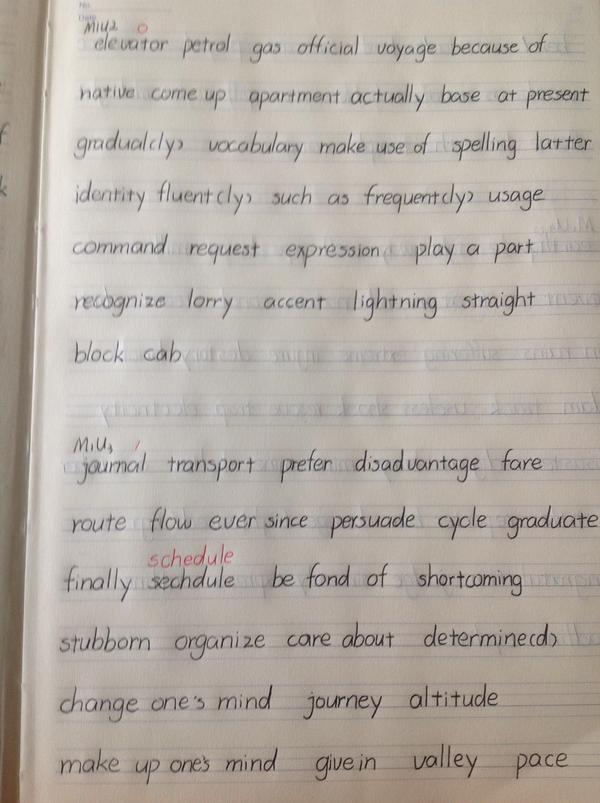 M1U2 0
elevator petrol gas official voyage because of
native come up apartment actually base at present
gradual(ly) vocabulary make use of spelling latter
identity fluent(ly) such as frequent(ly) usage
command request expression play a part
recognize lorry accent lightning straight
block cab
M1U3 1
journal transport prefer disadvantage fare
route flow ever since persuade cycle graduate
schedule
finally sechdule be fond of shortcoming
stubborn organize care about determine(d)
change one's mind journey altitude
make up one's mind give in valley pace